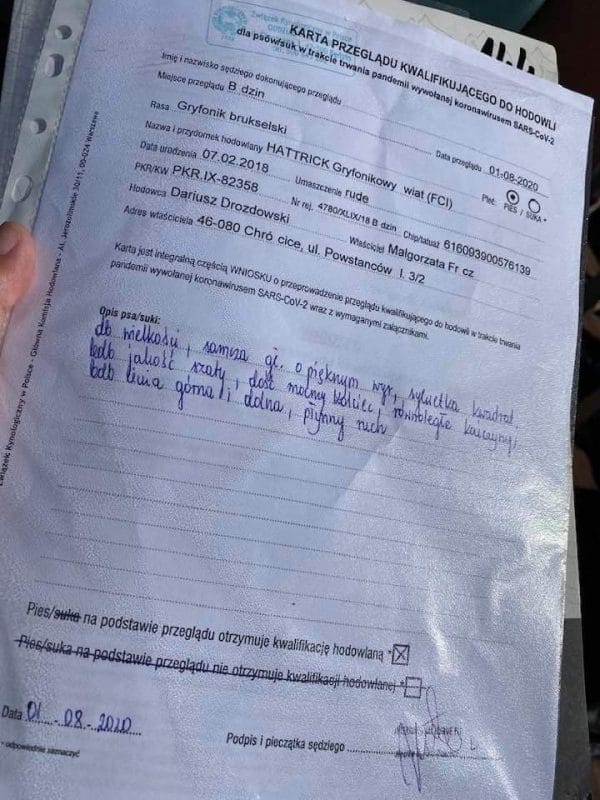 Związek Kynologiczny w Polsce
KARTA PRZEGLĄDU KWALIFIKUJĄCEGO DO HODOWLI
dla psów/suk w trakcie trwania pandemii wywołanej koronawirusem SARS-CoV-2
Imię i nazwisko sędziego dokonującego przeglądu
Miejsce przeglądu B dzin Data przeglądu 01-08-2020
Rasa Gryfonik brukselski
Nazwa i przydomek hodowlany HATTRICK Gryfonikowy wiat (FCI) Płeć: PIES / SUKA *
Data urodzenia 07.02.2018 Umaszczenie rude
PKR/KW PKR.IX-82358 Nr rej. 4780/XLIX/18 B dzin Chip/tatuaż 616093900576139
Hodowca Dariusz Drozdowski Właściciel Małgorzata Fr cz
Adres właściciela 46-080 Chró cice, ul. Powstanców l. 3/2
Karta jest integralną częścią WNIOSKU o przeprowadzenie przeglądu kwalifikującego do hodowli w trakcie trwania
pandemii wywołanej koronawirusem SARS-CoV-2 wraz z wymaganymi załącznikami.
Opis psa/suki:
db wielkości, samcza gł. o pięknym wyr, sylwetka kwadrat
bdb jakość szaty, dość mocny kościec, równoległe kończyny,
bdb linia górna i dolna, płynny ruch
Pies/suka na podstawie przeglądu otrzymuje kwalifikację hodowlaną *
Pies/suka na podstawie przeglądu nie otrzymuje kwalifikacji hodowlanej *
Data 01-08-2020
Podpis i pieczątka sędziego
* odpowiednie zaznaczyć
Związek Kynologiczny w Polsce - Główna Komisja Hodowlana - Al. Jerozolimskie 30/11, 00-024 Warszawa